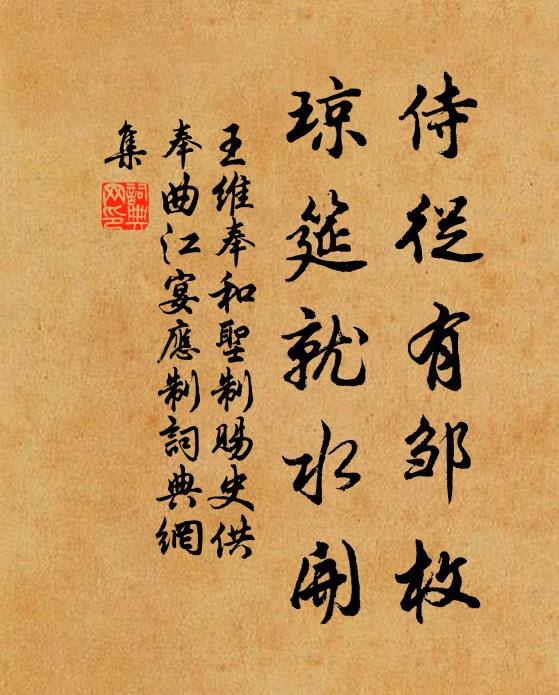 侍從有邹枚
琼筵就水開
王維奉和聖制賜史供
奉曲江宴應制詞典網
集
詞典
网印